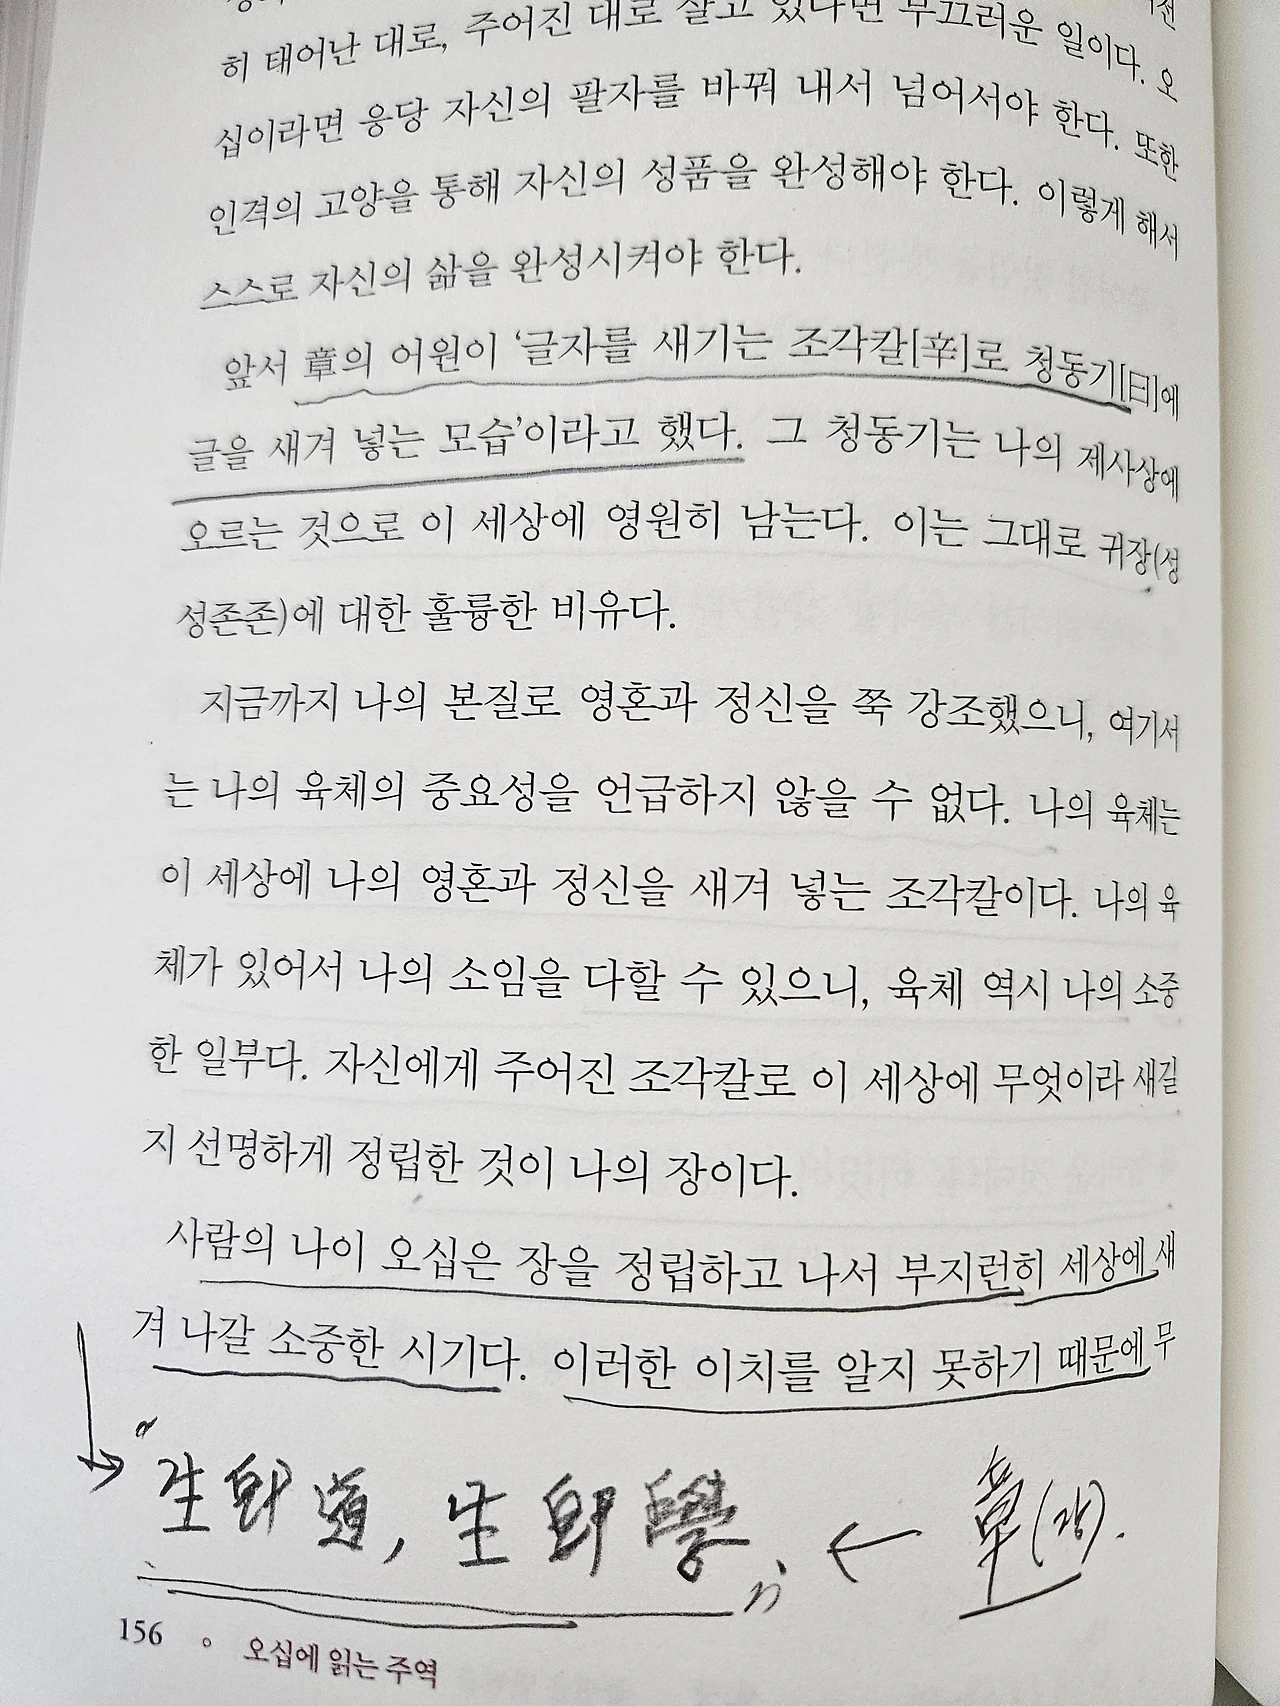 히 태어난 대로, 주어진 대로 살고 있다면 부끄러운 일이다. 오
십이라면 응당 자신의 팔자를 바꿔 내서 넘어서야 한다. 또한
인격의 고양을 통해 자신의 성품을 완성해야 한다. 이렇게 해서
스스로 자신의 삶을 완성시켜야 한다.
앞서 章의 어원이 ‘글자를 새기는 조각칼[辛]로 청동기[曰]에
글을 새겨 넣는 모습’이라고 했다. 그 청동기는 나의 제사상에
오르는 것으로 이 세상에 영원히 남는다. 이는 그대로 귀장(성
성존존)에 대한 훌륭한 비유다.
지금까지 나의 본질로 영혼과 정신을 쭉 강조했으니, 여기서
는 나의 육체의 중요성을 언급하지 않을 수 없다. 나의 육체는
이 세상에 나의 영혼과 정신을 새겨 넣는 조각칼이다. 나의 육
체가 있어서 나의 소임을 다할 수 있으니, 육체 역시 나의 소중
한 일부다. 자신에게 주어진 조각칼로 이 세상에 무엇이라 새길
지 선명하게 정립한 것이 나의 장이다.
사람의 나이 오십은 장을 정립하고 나서 부지런히 세상에 새
겨 나갈 소중한 시기다. 이러한 이치를 알지 못하기 때문에 무
“生卽道, 生卽學” ← 章(장).
156 ∘ 오십에 읽는 주역